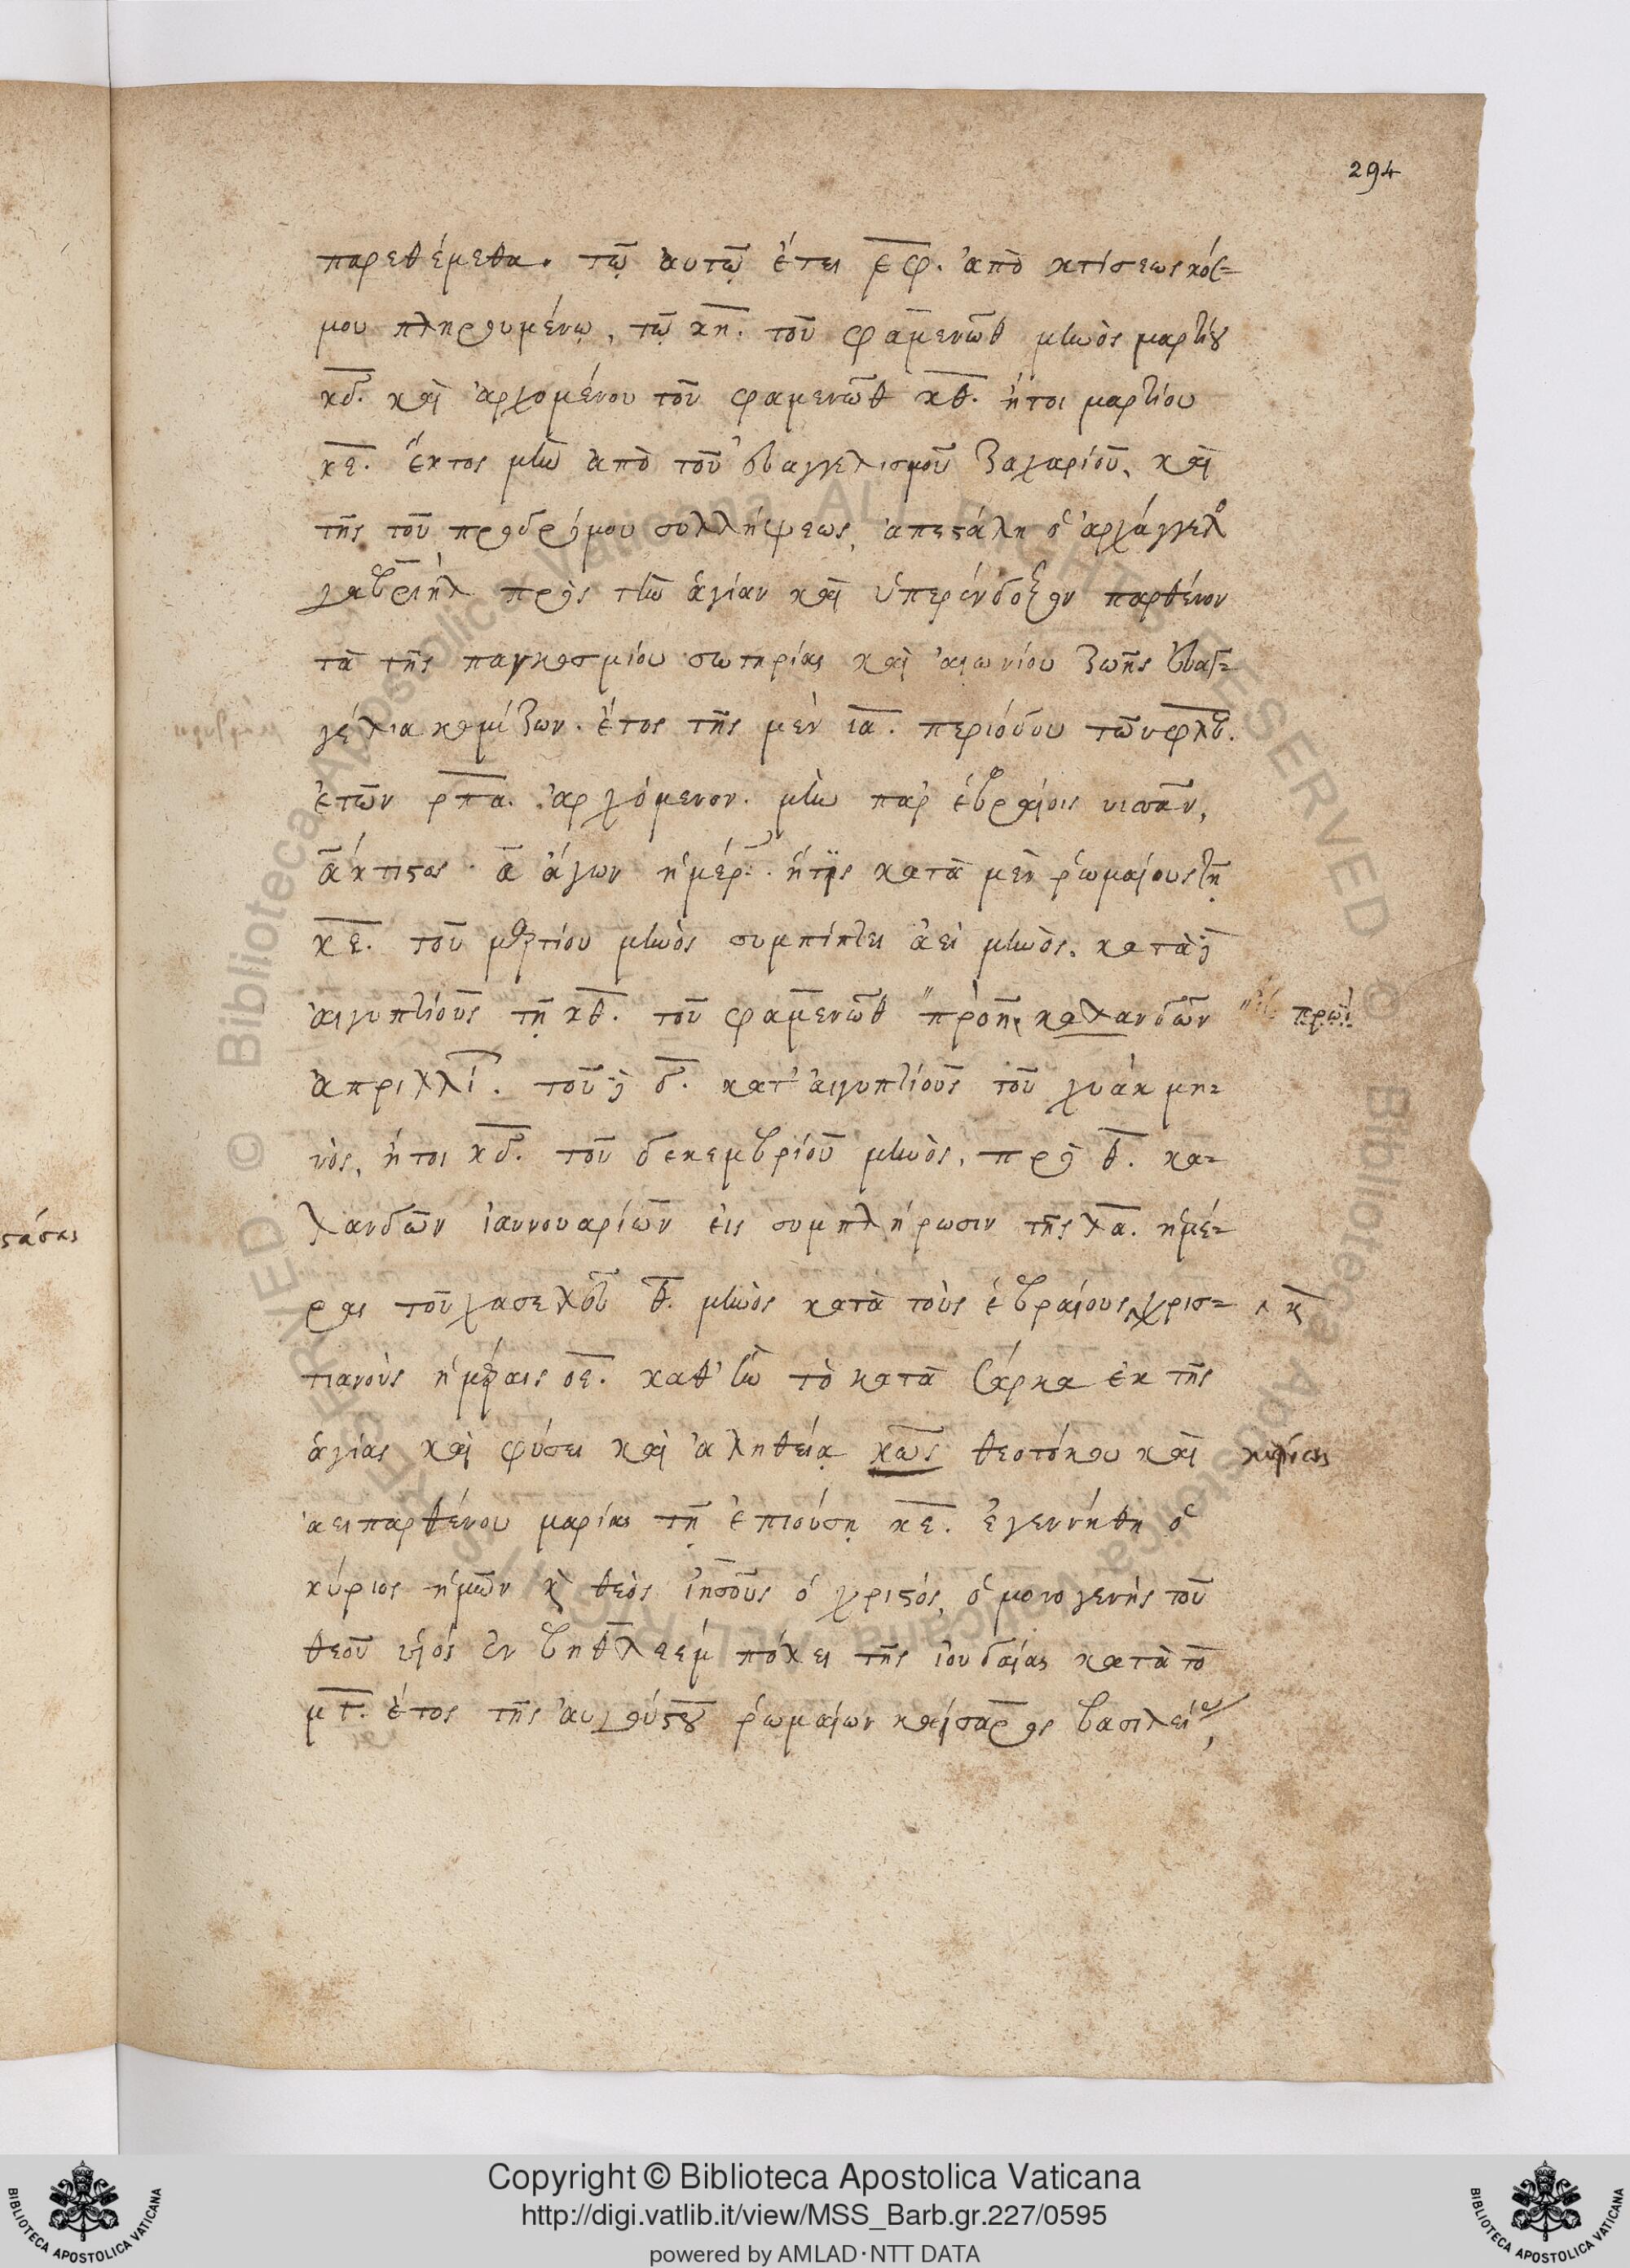 294
παρεθέμεθα. τῷ ἀυτῷ ἔτει ͵εφ. ἀπὸ κτίσεως κόσ=
μου πληρουμένῳ, τῷ κη. τοῦ φαμενὼθ μηνὸς μαρτίου
κδ. καὶ ἀρχομένου τοῦ φαμενὼθ κθ. ἤτοι μαρτίου
κε. ἕκτος μὴν ἀπὸ τοῦ ἐυαγγελισμοῦ Ζαχαρίου, καὶ
τῆς τοῦ προδρόμου συλλήψεως, ἀπεστάλη ὁ ἀρχάγγελο
γαβριὴλ πρὸς τὴν ἁγίαν καὶ ὑπερένδοξον παρθένον
τὰ τῆς παγκοσμίου σωτηρίας καὶ ἀιωνίου ζωῆς ἐυαγ=
γέλια κομίζων. ἔτος τῆς μὲν ια. περιόδου τῶν φλβ.
ἐτῶν ρπα. ἀρχόμενον. μὴν παρ ἑβραίοις νισὰν,
α ἄγων ἡμέρ. ἥτις κατὰ μὲν ῥωμαίους τῇ
κε. τοῦ μαρτίου μηνὸς συμπίπτει ἀεὶ μηνὸς. κατὰ δὲ
ἀιγυπτίους τῇ κθ. τοῦ φαμενὼθ " καλανδῶν " πρωῒ
ἀπριλλί. τοῦ δὲ δ. κατ' ἀιγυπτίους τοῦ χυάκ μη=
νὸς, ἤτοι κδ. τοῦ δεκεμβρίου μηνὸς, πρὸ θ. κα=
λανδῶν ἰαννουαρίων εἰς συμπλήρωσιν τῆς λα. ἡμέ=
ρας τοῦ χασελεῦ θ. μηνὸς κατὰ τοὺς ἑβραίους ‸ χρισ= ‸ κ̀
τιανοὺς ἡμέραις σε. καθ' ἣν τὸ κατὰ σάρκα ἐκ τῆς
ἁγίας καὶ φύσει καὶ ἀληθείᾳ κῶς θεοτόκου καὶ κυρίως
ἀειπαρθένου μαρίας τῇ ἐπιούσῃ κε. ἐγεννήθη ὁ
κύριος ἡμῶν κ̀ θεὸς ἰησοῦς ὁ χριστός, ὁ μονογενὴς τοῦ
θεοῦ υἱός ἐν βηθλεεμ πόλει τῆς ἰουδαίας κατὰ τὸ
ἔτος τῆς ἀυγούστου ῥωμαίων καίσαρος βασιλείας,
Copyright © Biblioteca Apostolica Vaticana
http://digi.vatlib.it/view/MSS_Barb.gr.227/0595
powered by AMLAD·NTT DATA